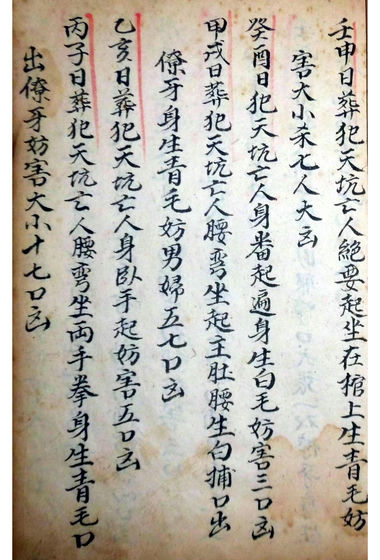 壬申日葬犯天坑亡人絶要起坐在棺上生青毛妨
害大小杀七人大凶
癸酉日犯天坑亡人身番起遍身生白毛妨害三口凶
甲戌日葬犯天坑亡人腰弯坐起主肚腰生白捕口出
僚牙身生青毛妨男婦五七口凶
乙亥日葬犯天坑亡人身臥手起妨害五口凶
丙子日葬犯天坑亡人腰弯坐両手拳身生青毛口
出僚牙妨害大小十七口凶